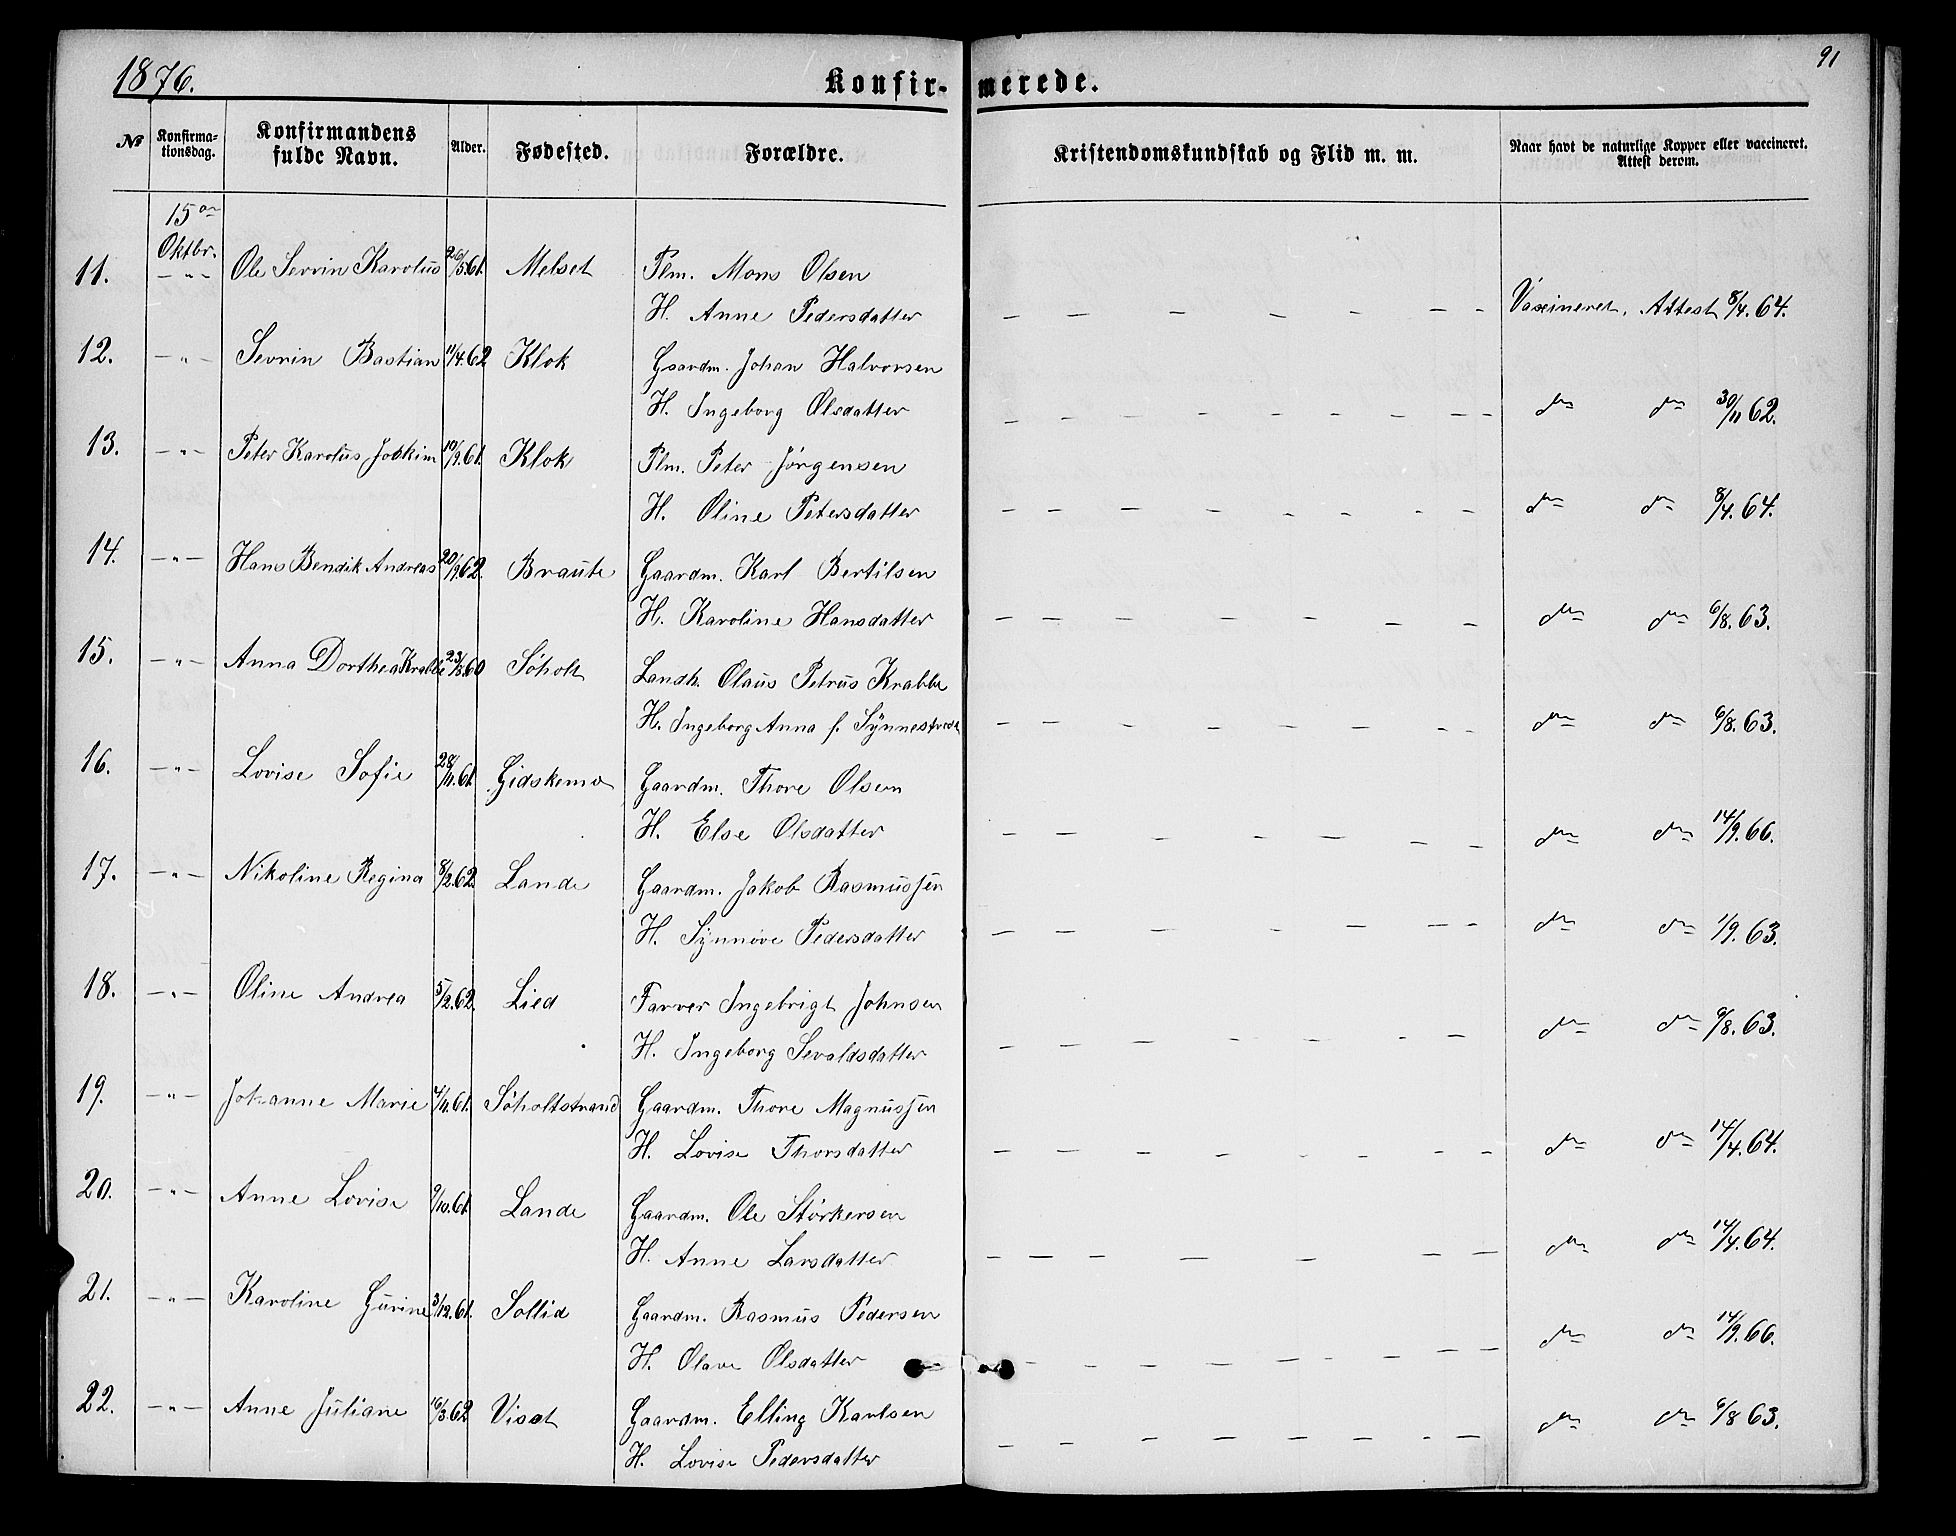 1876.
Konfirmerede.
91
№ Konfirmationsdag. Konfirmandens fulde Navn. Alder. Fødested. Forældre. Kristendomskundskab og Flid m. m. Naar havt de naturlige Kopper eller vaccineret. Attest derom.
15de
Oktbr.
11. — " — Ole Sevrin Karolus 26/5.61. Melset Plm. Mons Olsen
H. Anne Pedersdatter — — — — — — — Vaxineret. Attest 8/4.64.
12. — " — Sevrin Bastian 11/4.62 Klok Gaardm. Johan Halvorsen
H. Ingeborg Olsdatter — — — — — — — do do 30/11 62.
13. — " — Peter Karolus Joakim 10/9.61. Klok Plm. Peter Jørgensen
H. Oline Petersdatter — — — — — — — — do do 8/4.64.
14. — " — Hans Bendik Andreas 20/9.62. Braute Gaardm. Karl Bertilsen
H. Karoline Hansdatter — — — — — — — do do 6/8.63.
15. — " — Anna Dorthea Krabbe 23/8.60 Søholt Landh. Olaus Petrus Krabbe
H. Ingeborg Anna f. Synnestvedt — — — — — — — do do 6/8.63.
16. — " — Lovise Sofie 28/11.61. Gidskemo Gaardm. Thore Olsen
H. Else Olsdatter — — — — — — — do do 14/9.66.
17. — " — Nikoline Regina 8/2.62. Lande Gaardm. Jakob Rasmussen
H. Synnøve Pedersdatter — — — — — — — do do 1/9.63.
18. — " — Oline Andrea 5/2.62. Lied Farver Ingebrigt Johnsen
H. Ingeborg Sevaldsdatter — — — — — — — do do 6/8.63.
19. — " — Johanne Marie 4/11.61. Søholtstrand Gaardm. Thore Magnussen
H. Lovise Thorsdatter — — — — — — — do do 14/4.64.
20. — " — Anne Lovise 9/10.61. Lande Gaardm. Ole Størkersen
H. Anne Larsdatter — — — — — — — do do 14/4.64.
21. — " — Karoline Gurine 3/12.61. Sollid Gaardm. Rasmus Pedersen
H. Olave Olsdatter — — — — — — — do do 14/9.66.
22. — " — Anne Juliane 16/3.62 Viset Gaardm. Elling Karlsen
H. Lovise Pedersdatter — — — — — — — do do 6/8 63.